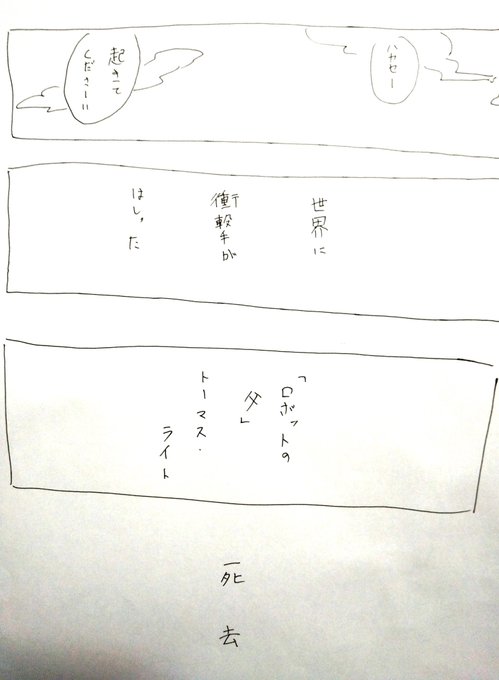 ハカセー
起きて
くださーい
世界に
衝撃が
はしった
「ロボットの
父」
トーマス・
ライト
死去